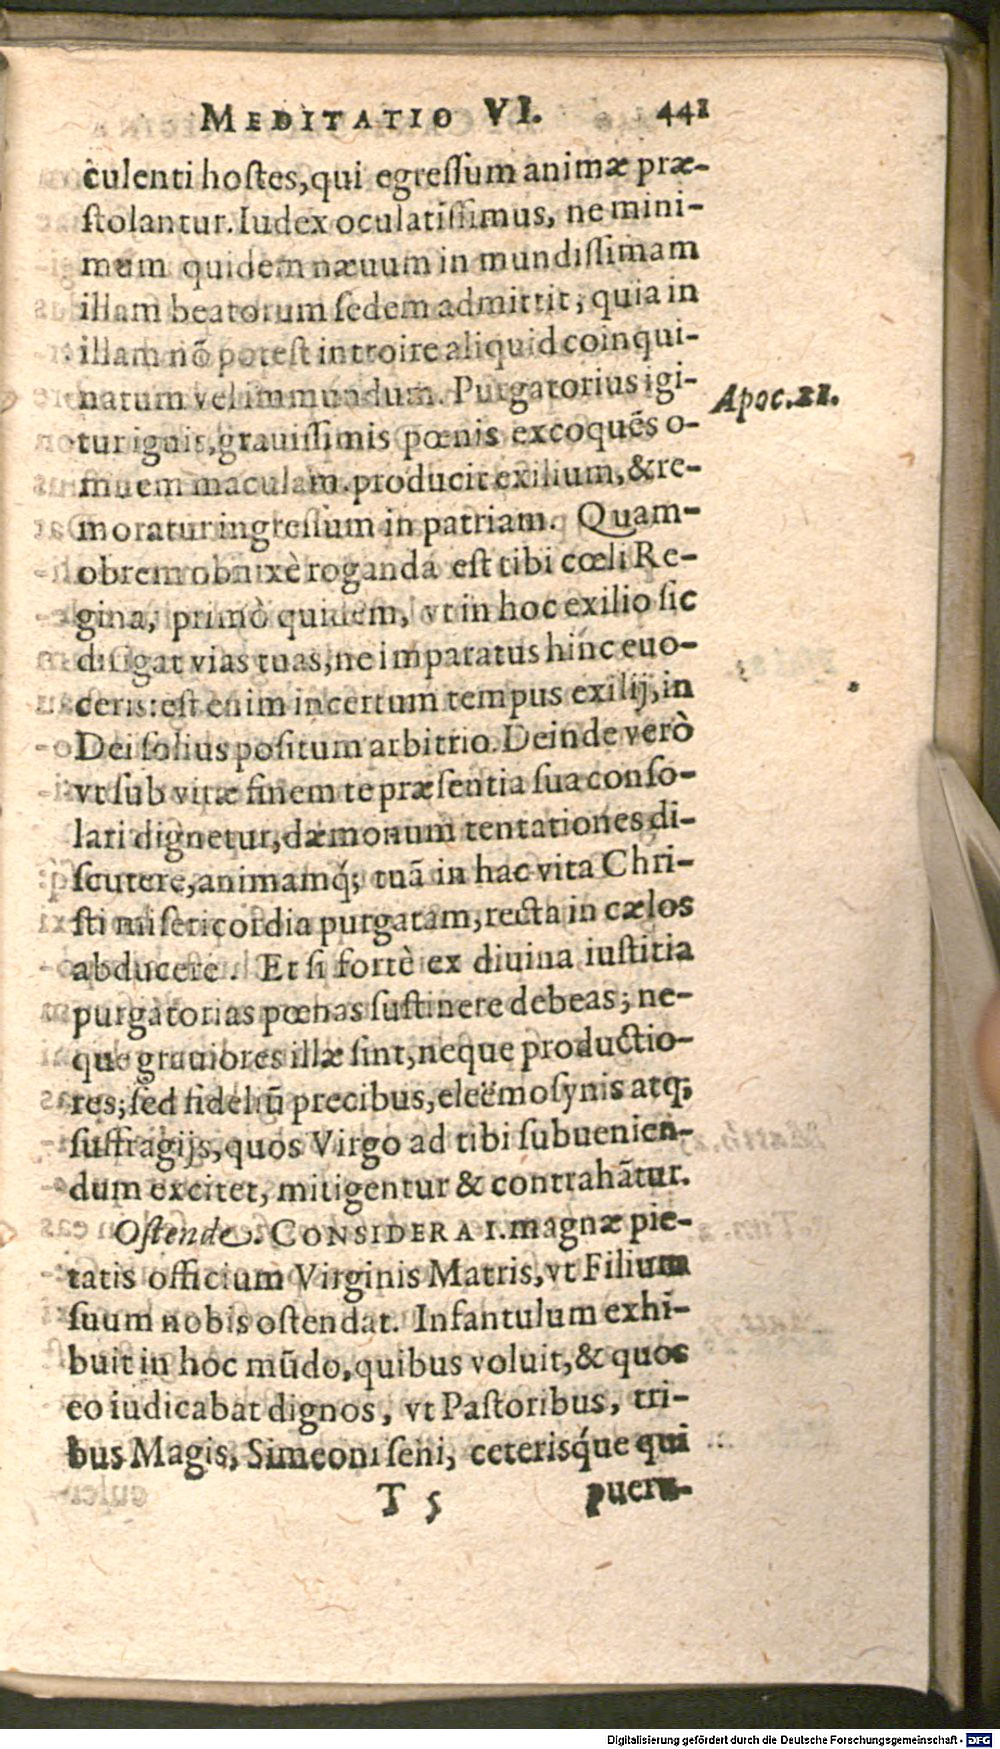 MEDITATIO VI. 441
culenti hostes, qui egreſſum animæ præ-
ſtolantur. Iudex oculatiſſimus, ne mini-
mum quidem næuum in mundiſſimam
illam beatorum ſedem admittit; quia in
illam nõ poteſt introire aliquid coinqui-
natum vel immundum. Purgatorius igi-
Apoc. 21.
tur ignis, grauiſſimis pœnis excoquẽs o-
mnem maculam. producit exilium, & re-
moratur ingreſſum in patriam. Quam-
obrem obnixè roganda eſt tibi cœli Re-
gina, primò quidem, vt in hoc exilio ſic
dirigat vias tuas, ne imparatus hinc euo-
ceris: eſt enim incertum tempus exilij, in
Dei ſolius poſitum arbitrio. Deinde verò
vt ſub vitæ finem te præſentia ſua conſo-
lari dignetur, dæmonum tentationes di-
ſcutere, animamq́; tuã in hac vita Chri-
ſti miſericordia purgatam, recta in cælos
abducere. Et ſi fortè ex diuina iuſtitia
purgatorias pœnas ſuſtinere debeas; ne-
que grauiores illæ ſint, neque productio-
res; ſed fideliũ precibus, eleëmoſynis atq;
ſuffragijs, quos Virgo ad tibi ſubuenien-
dum excitet, mitigentur & contrahãtur.
Oſtende. CONSIDERA I. magnæ pie-
tatis officium Virginis Matris, vt Filium
ſuum nobis oſtendat. Infantulum exhi-
buit in hoc mũdo, quibus voluit, & quos
eo iudicabat dignos, vt Paſtoribus, tri-
bus Magis, Simeoni ſeni, ceterisq́ue qui
T 5 pueru-
Digitalisierung gefördert durch die Deutsche Forschungsgemeinschaft - DFG